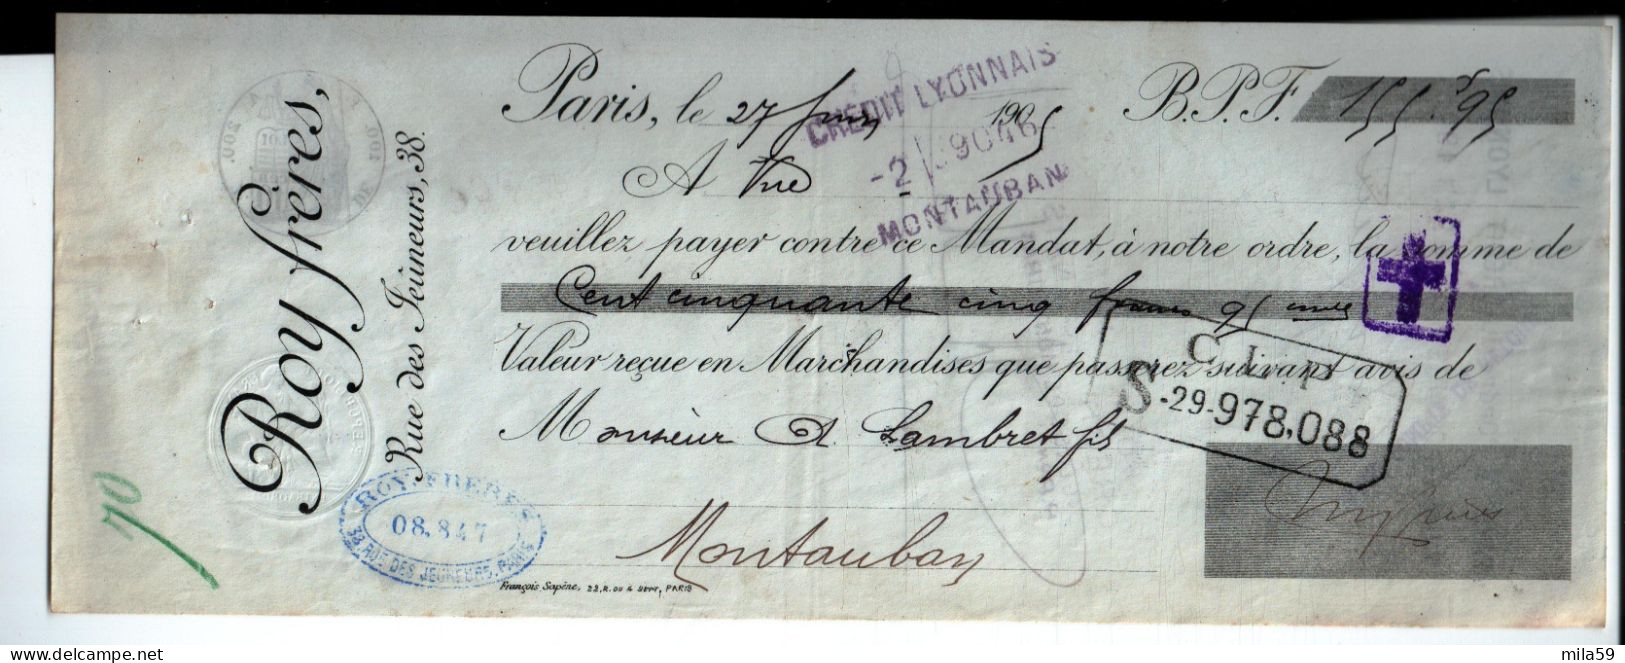 Roy frères,
Rue des Jeûneurs, 38.
Paris, le 27 Juin 1905 B.P.F. 155 f 95
A Vue
CREDIT LYONNAIS
MONTAUBAN
veuillez payer contre ce Mandat, à notre ordre, la somme de
Cent cinquante cinq francs 95 cmes
Valeur reçue en Marchandises que passerez suivant avis de
C L P
S -29-978,088
Monsieur A Lambret fils
Montauban
ROY FRERES
08.847
38 RUE DES JEUNEURS. PARIS
70
François Sapène, 22, R. DU 4 SEPT, PARIS
delcampe.net
mila59